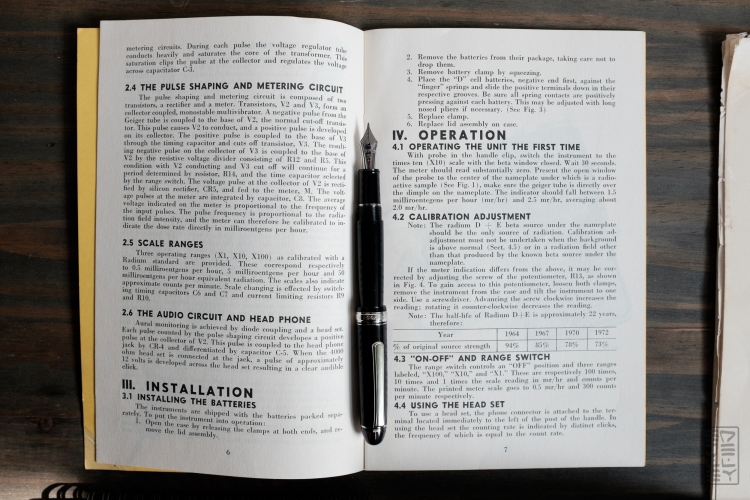 metering circuits. During each pulse the voltage regulator tube
conducts heavily and saturates the core of the transformer. This
saturation clips the pulse at the collector and regulates the voltage
across capacitor C-3.
2.4 THE PULSE SHAPING AND METERING CIRCUIT
The pulse shaping and metering circuit is composed of two
transistors, a rectifier and a meter. Transistors, V2 and V3, form an
collector coupled, monostable multivibrator. A negative pulse from the
Geiger tube is coupled to the base of V2, the normal cut-off transis-
tor. This pulse causes V2 to conduct, and a positive pulse is developed
on its collector. The positive pulse is coupled to the base of V3
through the timing capacitor and cuts off transistor, V3. The result-
ing negative pulse on the collector of V3 is coupled to the base of
V2 by the resistive voltage divider consisting of R12 and R5. This
condition with V2 conducting and V3 cut off will continue for a
period determined by resistor, R14, and the time capacitor selected
by the range switch. The voltage pulse at the collector of V2 is recti-
fied by silicon rectifier, CR5, and fed to the meter, M. The volt-
age pulses at the meter are integrated by capacitor, C8. The average
voltage indicated on the meter is proportional to the frequency of
the input pulses. The pulse frequency is proportional to the radia-
tion field intensity, and the meter can therefore be calibrated to in-
dicate the dose rate directly in milliroentgens per hour.
2.5 SCALE RANGES
Three operating ranges (X1, X10, X100) as calibrated with a
Radium standard are provided. These correspond respectively
to 0.5 milliroentgens per hour, 5 milliroentgens per hour and 50
milliroentgens per hour equivalent radiation. The scales also indicate
approximate counts per minute. Scale changing is effected by switch-
ing timing capacitors C6 and C7 and current limiting resistors R9
and R10.
2.6 THE AUDIO CIRCUIT AND HEAD PHONE
Aural monitoring is achieved by diode coupling and a head set.
Each pulse counted by the pulse shaping circuit developes a positive
pulse at the collector of V2. This pulse is coupled to the head phone
jack by CR-4 and differentiated by capacitor C-5. When the 4000
ohm head set is connected at the jack, a pulse of approximately
12 volts is developed across the head set resulting in a clear audible
click.
III. INSTALLATION
3.1 INSTALLING THE BATTERIES
The instruments are shipped with the batteries packed sepa-
rately. To put the instrument into operation:
1. Open the case by releasing the clamps at both ends, and re-
move the lid assembly.
6
2. Remove the batteries from their package, taking care not to
drop them.
3. Remove battery clamp by squeezing.
4. Place the "D" cell batteries, negative end first, against the
"finger" springs and slide the positive terminals down in their
respective grooves. Be sure all spring contacts are positively
pressing against each battery. This may be adjusted with long
nosed pliers if necessary. (See Fig. 3)
5. Replace clamp.
6. Replace lid assembly on case.
IV. OPERATION
4.1 OPERATING THE UNIT THE FIRST TIME
With probe in the handle clip, switch the instrument to the
times ten (X10) scale with the beta window closed. Wait 30 seconds.
The meter should read substantially zero. Present the open window
of the probe to the center of the nameplate under which is a radio-
active sample (See Fig. 1), make sure the geiger tube is directly over
the dimple on the nameplate. The indicator should fall between 1.5
milliroentgens per hour (mr/hr) and 2.5 mr/hr, averaging about
2.0 mr/hr.
4.2 CALIBRATION ADJUSTMENT
Note: The radium D + E beta source under the nameplate
should be the only source of radiation. Calibration ad-
justment must not be undertaken when the background
is above normal (Sect. 4.5) or in a radiation field other
than that produced by the known beta source under the
nameplate.
If the meter indication differs from the above, it may be cor-
rected by adjusting the screw of the potentiometer, R13, as shown
in Fig. 4. To gain access to this potentiometer, loosen both clamps,
remove the instrument from the case and tilt the instrument to one
side. Use a screwdriver. Advancing the screw clockwise increases the
reading: rotating it counter-clockwise decreases the reading.
Note: The half-life of Radium D+E is approximately 22 years,
therefore:
Year 1964 1967 1970 1972
% of original source strength 94% 85% 78% 73%
4.3 "ON-OFF" AND RANGE SWITCH
The range switch controls an "OFF" position and three ranges
labeled, "X100," "X10," and "X1." These are respectively 100 times,
10 times and 1 times the scale reading in mr/hr and counts per
minute. The printed meter scale goes to 0.5 mr/hr and 300 counts
per minute respectively.
4.4 USING THE HEAD SET
To use a head set, the phone connector is attached to the ter-
minal located immediately to the left of the post of the handle. In
using the head set the counting rate is indicated by distinct clicks,
the frequency of which is equal to the count rate.
7